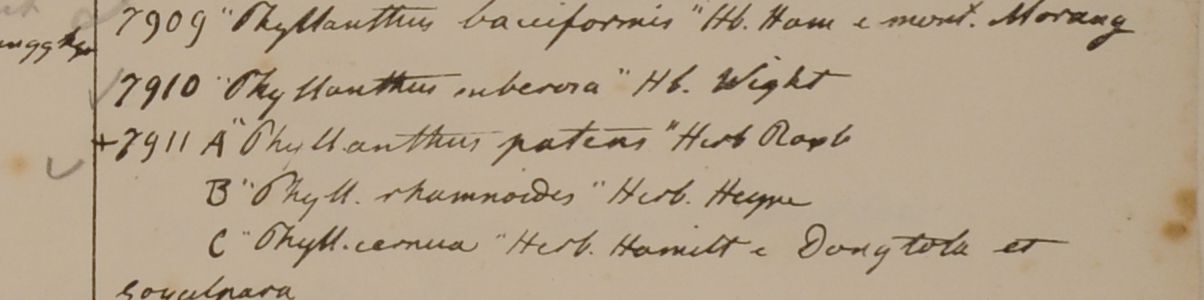 7909 "Phyllanthus bacciformis" Hb. Ham e mont. Morang
7910 "Phyllanthus suberosa" Hb. Wight
+7911 A "Phyllanthus patens" Herb Roxb
B "Phyll. rhamnoides" Herb. Heyne
C "Phyll. cernua" Herb. Hamilt e Dongtola et
Goyalpara